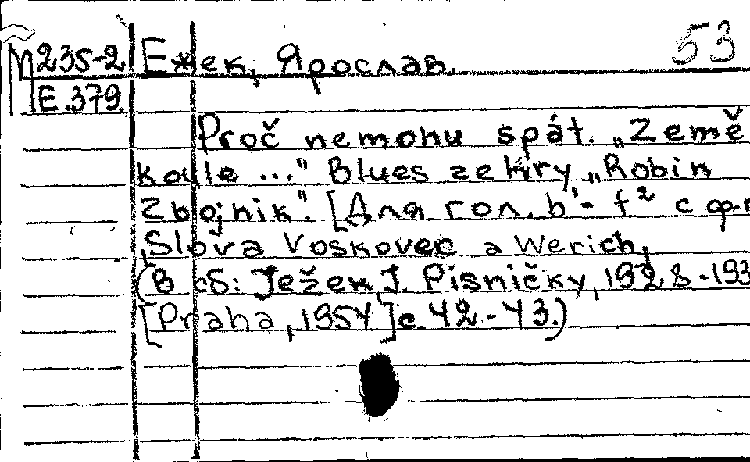 М235-2 Ежек, Ярослав. 53
Е.379.
Proč nemohu spát. „Země
koule ..." Blues ze hry „Robin
Zbojnik". [Для гол. b¹- f² с ф-п
Slova Voskovec a Werich,
(В сб: Ježek J. Pisničky, 1928-193
[Praha, 1954] с. 42.-43.)